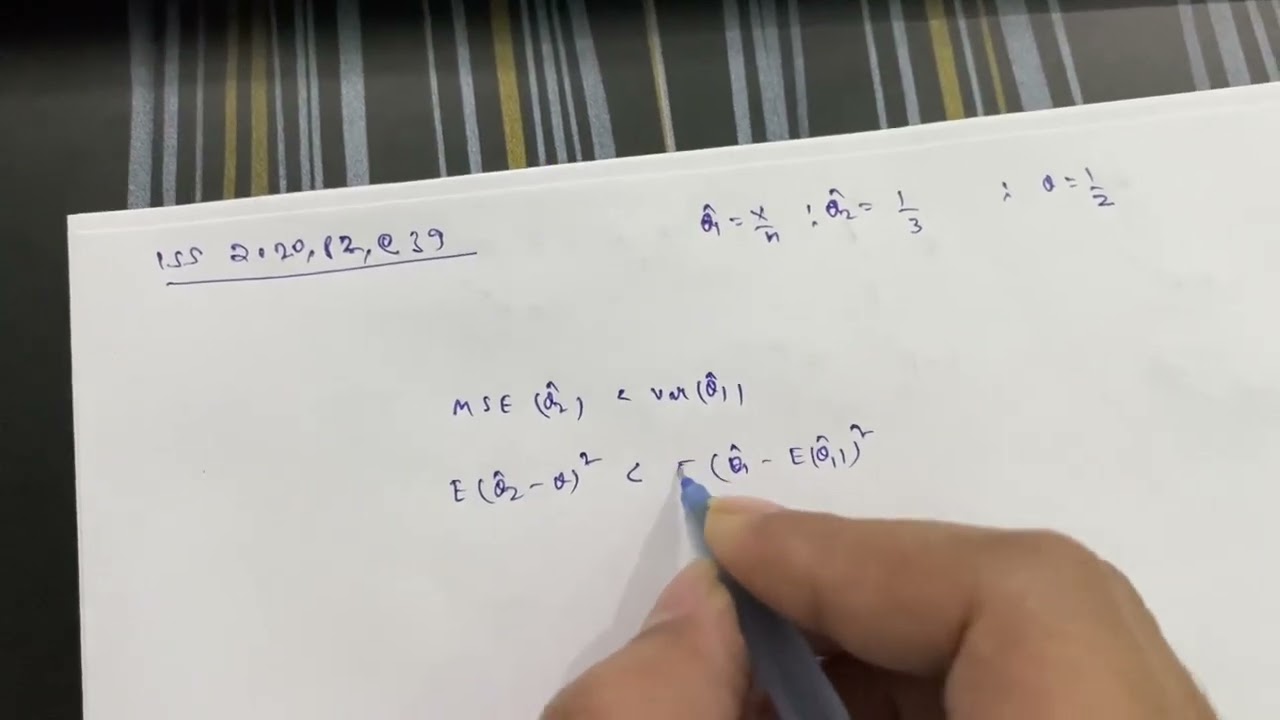 ISS 2020, P2, Q39
θ̂₁ = x/n ; θ̂₂ = 1/3 ; θ = 1/2
MSE (θ̂₂) < Var(θ̂₁)
E(θ̂₂ - θ)² < E(θ̂₁ - E(θ̂₁))²